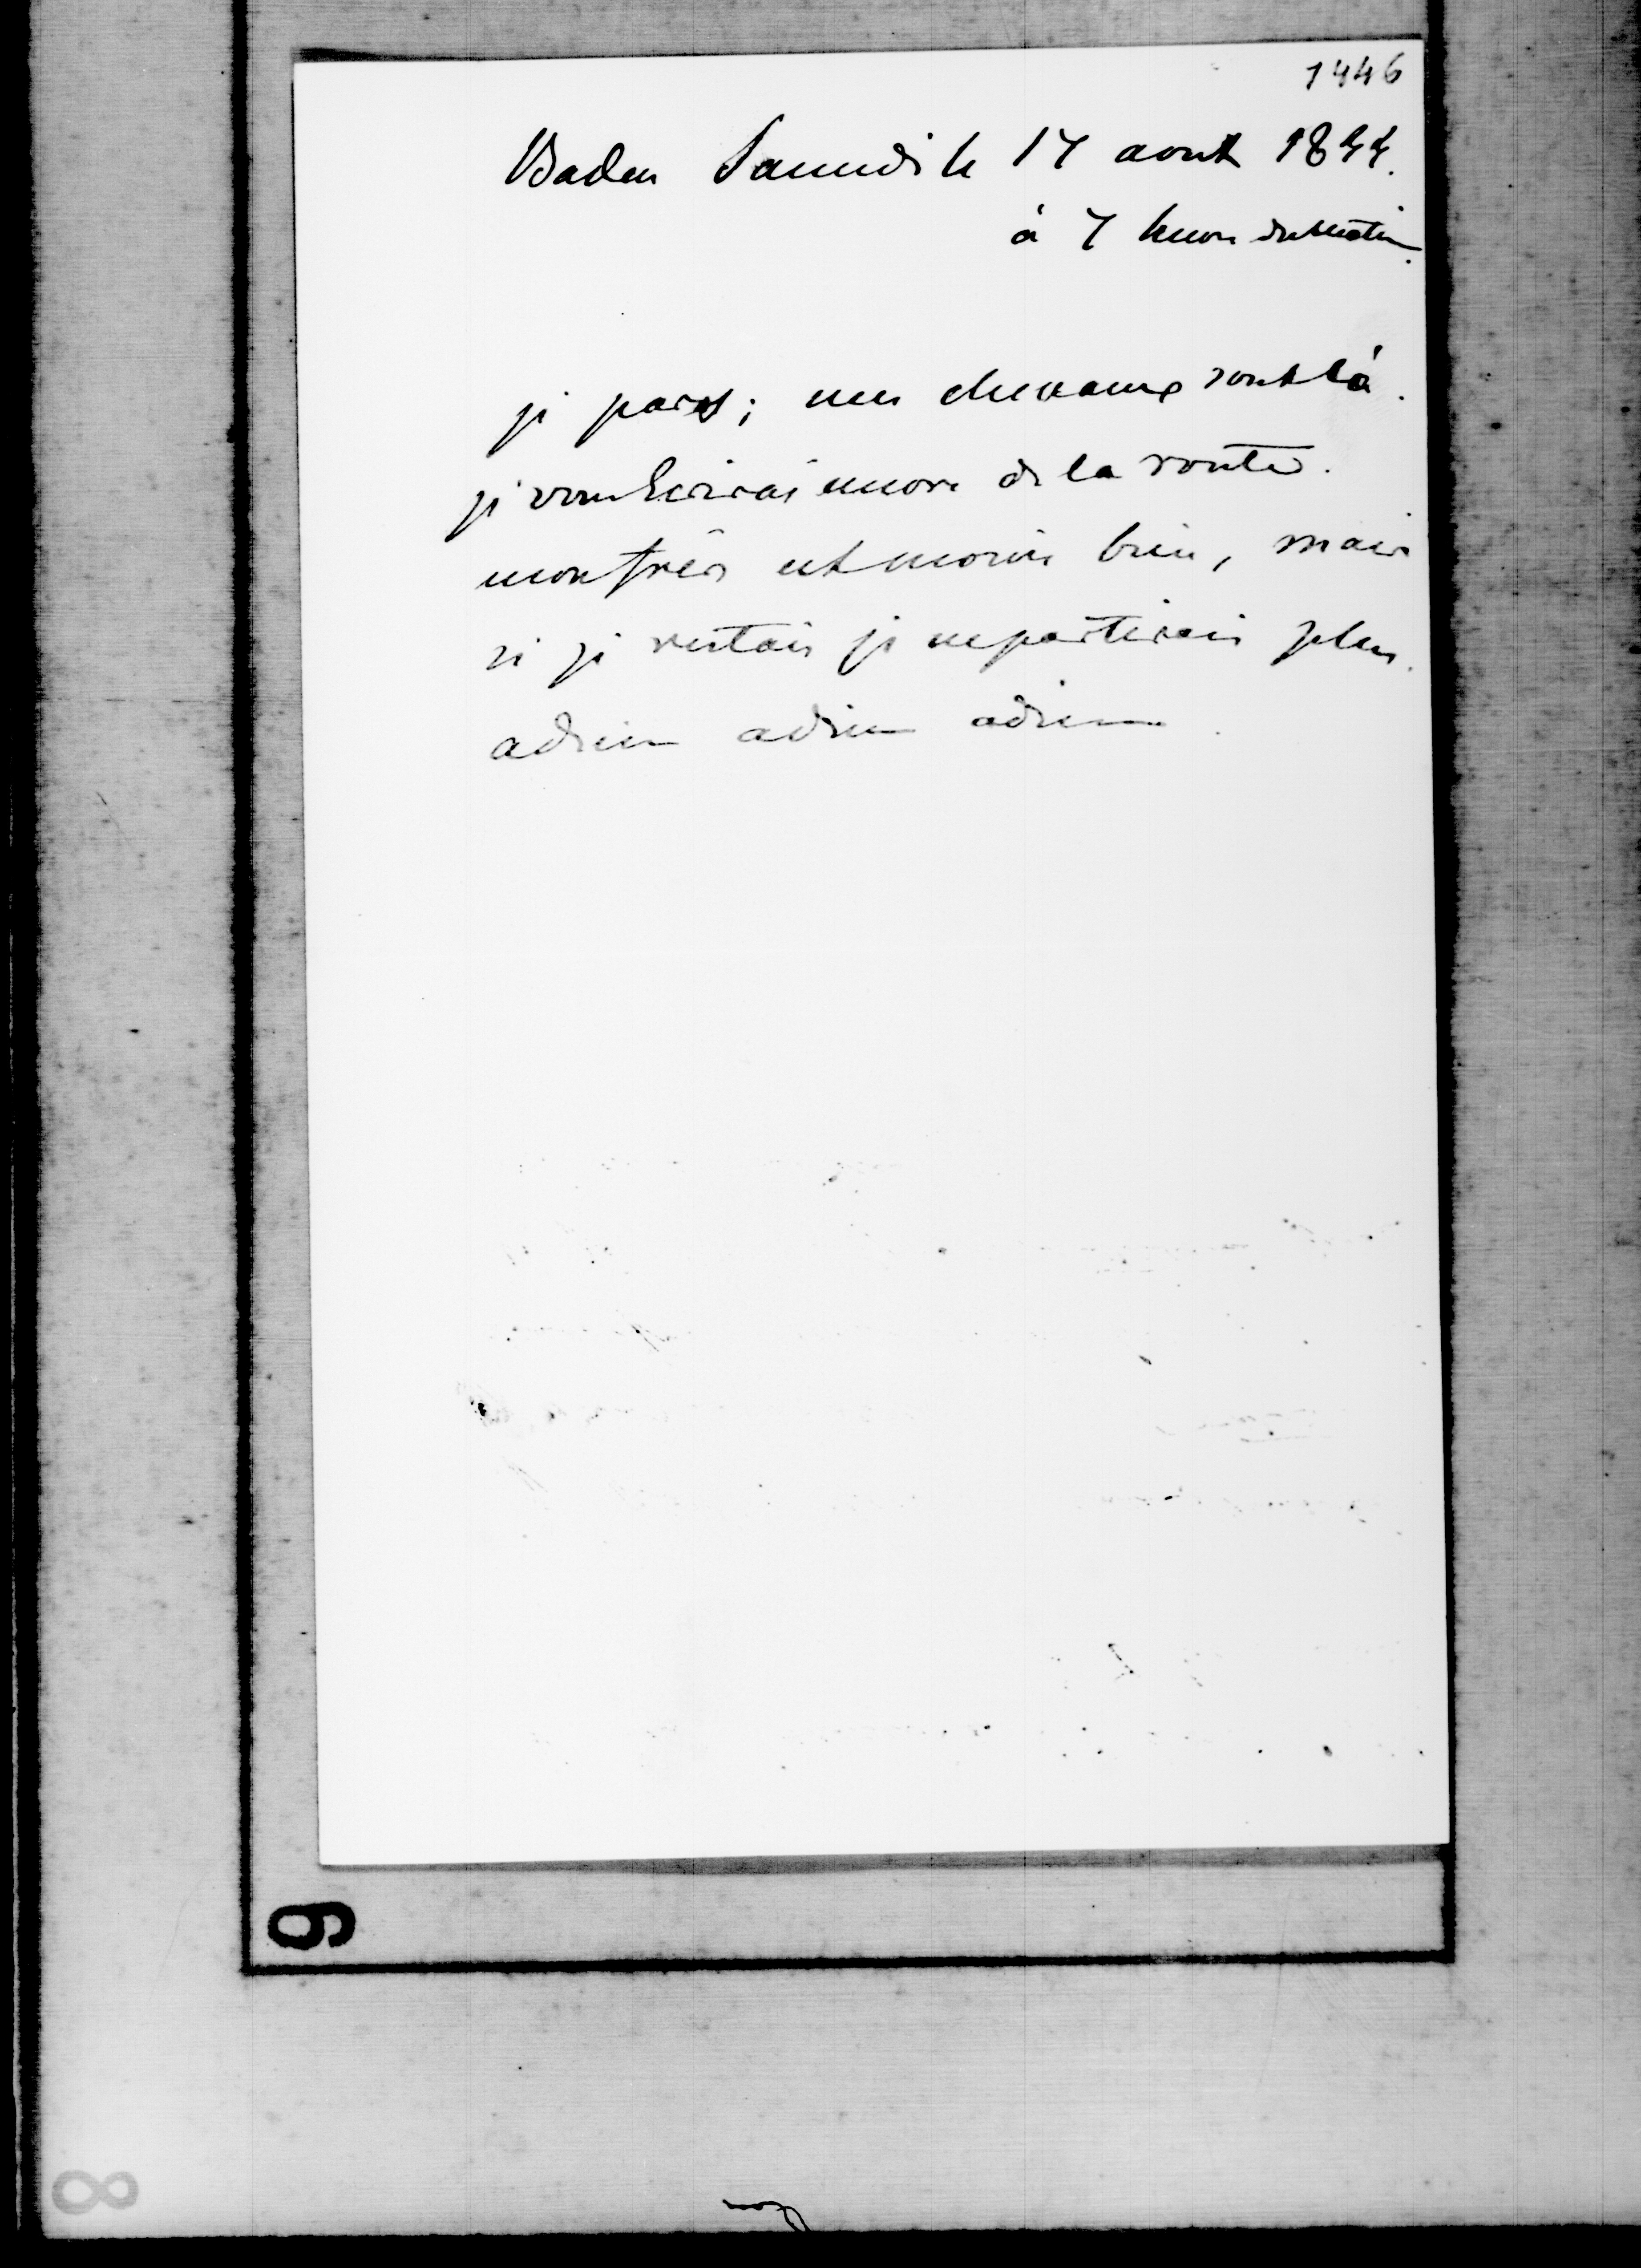 1446
Baden Samedi le 17 aout 1844.
à 7 heures du matin.
je pars ; mes chevaux sont là.
je vous écrirai encore de la route.
mon frère est moins bien, mais
si je restais je ne partirais plus.
adieu adieu adieu.
9
8